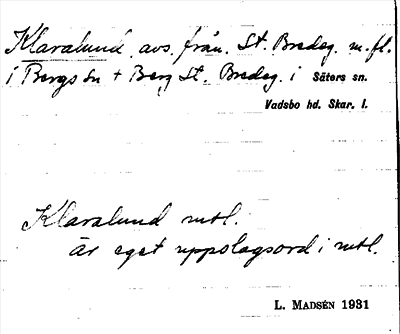 Klaralund avs. från. St. Bredeg. m.fl.
i Bergs Sn + Berg St. Bredeg. i Säters sn.
Vadsbo hd. Skar. l.
Klaralund mtl.
är eget uppslagsord i mtl.
L. MADSÉN 1931